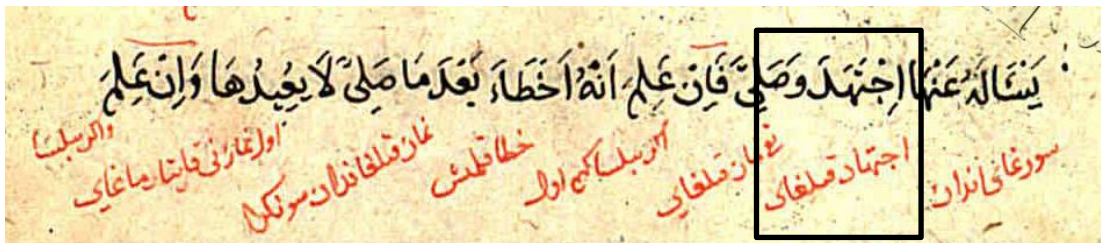 يَسْئَالَهُ عَنْهَا اِجْتَهَدَ وَصَلِيَّ فَاِنْ عَلِمَ اَنَّهُ اَخَطَاءَ بَعْدَ مَا صَلِىَّ لَا يُعِيدُهَا وَاِنْ عَلِمَ
سورغاى اندان اجتهاد قيلغاى تقى نماز قيلغاى اكر بيلسا كيم اول خطا قيلميش نماز قيلغاندان سونكل اول نمازنى قايتارماغاى واكر بيلسا